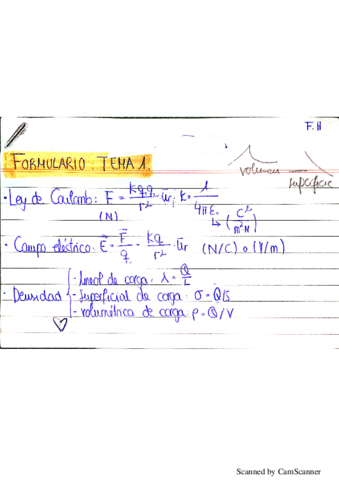 F. II
FORMULARIO. TEMA 1.
volumen
superficie
· Ley de Coulomb: F = Kq.q/r² · ūr; K = 1/4πε₀ → (C²/m²N)
(N)
· Campo eléctrico: E⃗ = F⃗/q = Kq/r² · ūr (N/C) o (V/m)
- Lineal de carga: λ = Q/L
· Densidad - Superficial de carga: σ = Q/S
- Volumétrica de carga: ρ = Q/V
Scanned by CamScanner